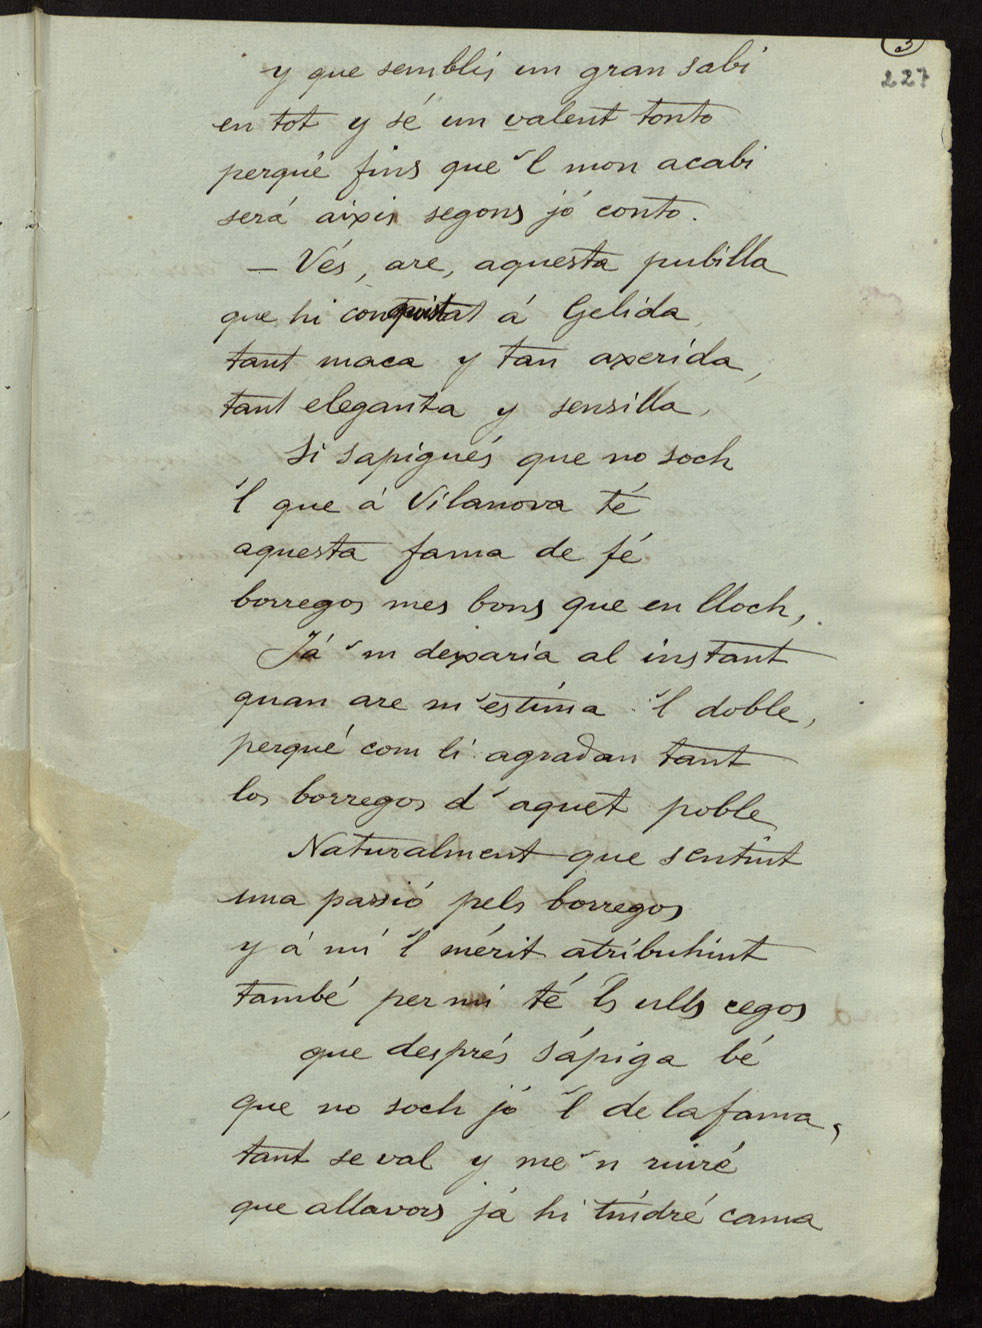 3
227
y que semblis un gran sabi
en tot y sé un valent tonto
perqué fins que 'l mon acabi
será aixis segons jó conto.
— Vés, are, aquesta pubilla
que hi conquistat á Gelida,
tant maca y tan axerida,
tant eleganta y sensilla,
Si sapigués que no soch
'l que á Vilanova té
aquesta fama de fé
borregos mes bons que en lloch,
Já 'm deixaria al instant
quan are m'estima 'l doble,
perqué com li agradan tant
los borregos d' aquet poble
Naturalment que sentint
una passió pels borregos
y á mi 'l mérit atribuhint
també per mi té 'ls ulls cegos
que després sápiga bé
que no soch jo 'l de la fama,
tant se val y me 'n riuré
que allavors já hi tindré cama